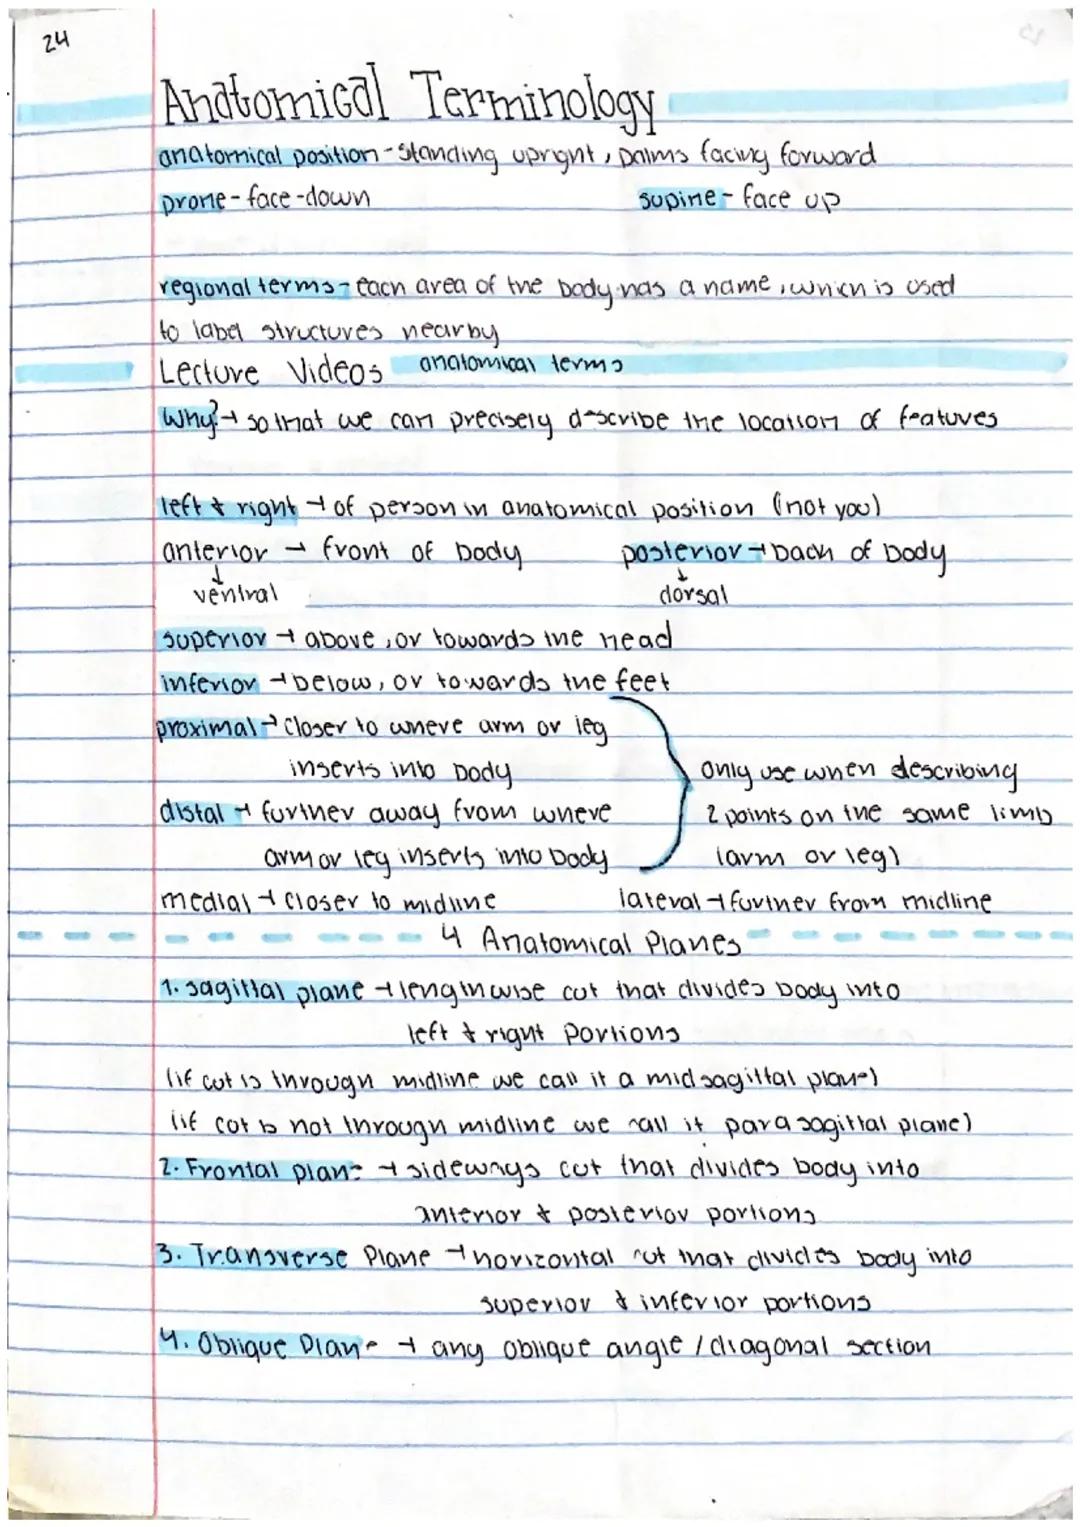 24
Anatomical Terminology
anatomical position - standing upright, palms facing forward
prone - face-down supine - face up
regional terms - each area of the body has a name, which is used
to label structures nearby
Lecture Videos anatomical terms
Why? → so that we can precisely describe the location of features
left & right → of person in anatomical position (not you)
anterior → front of body posterior → back of body
↓ ↓
ventral dorsal
superior → above, or towards the head
inferior → below, or towards the feet
proximal → closer to where arm or leg
inserts into body only use when describing
distal → further away from where 2 points on the same limb
arm or leg inserts into body (arm or leg)
medial → closer to midline lateral → further from midline
4 Anatomical Planes
1. sagittal plane → lengthwise cut that divides body into
left & right portions
(if cut is through midline we call it a midsagittal plane)
(if cut is not through midline we call it parasagittal plane)
2. Frontal plane → sideways cut that divides body into
anterior & posterior portions
3. Transverse Plane → horizontal cut that divides body into
superior & inferior portions
4. Oblique Plane → any oblique angle / diagonal section